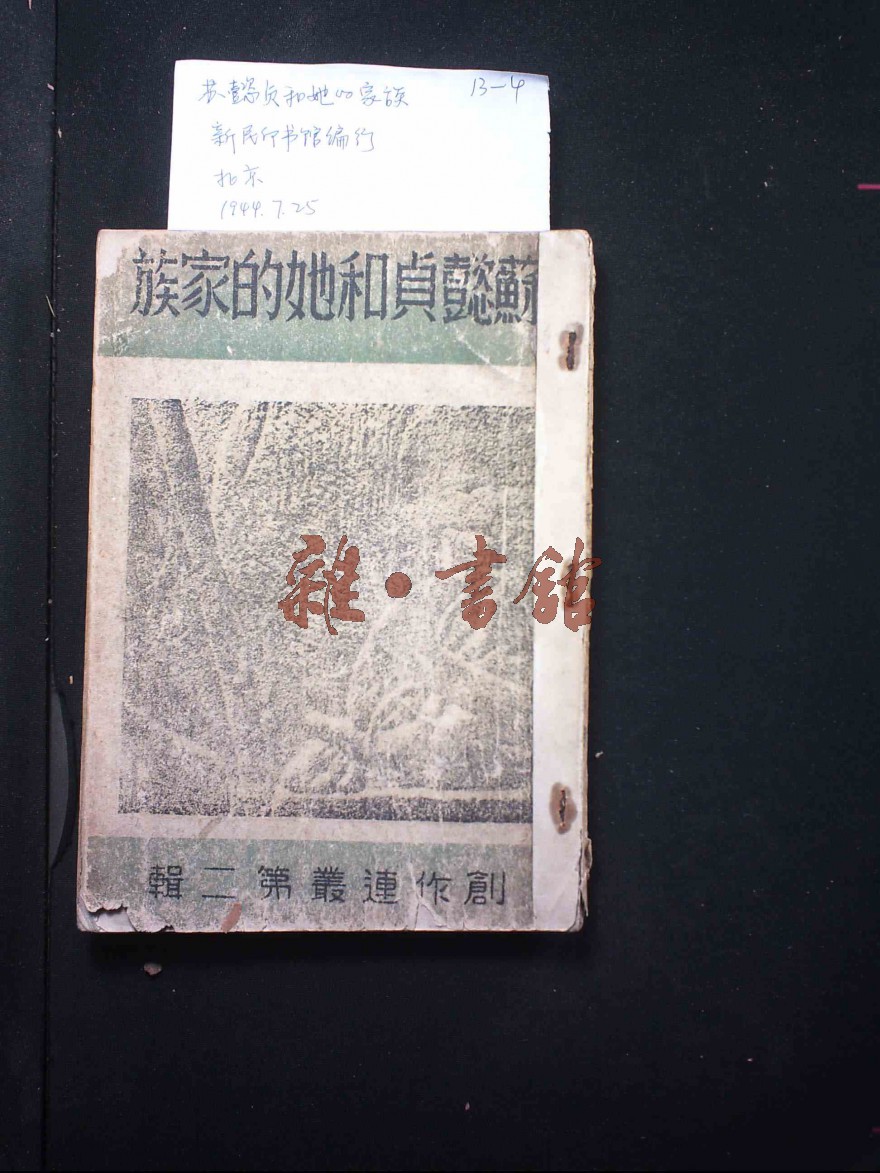 苏懿贞和她的家族
13-4
新民印书馆编行
北京
1944.7.25
蘇懿貞和她的家族
雜·書館
創作連叢第二輯